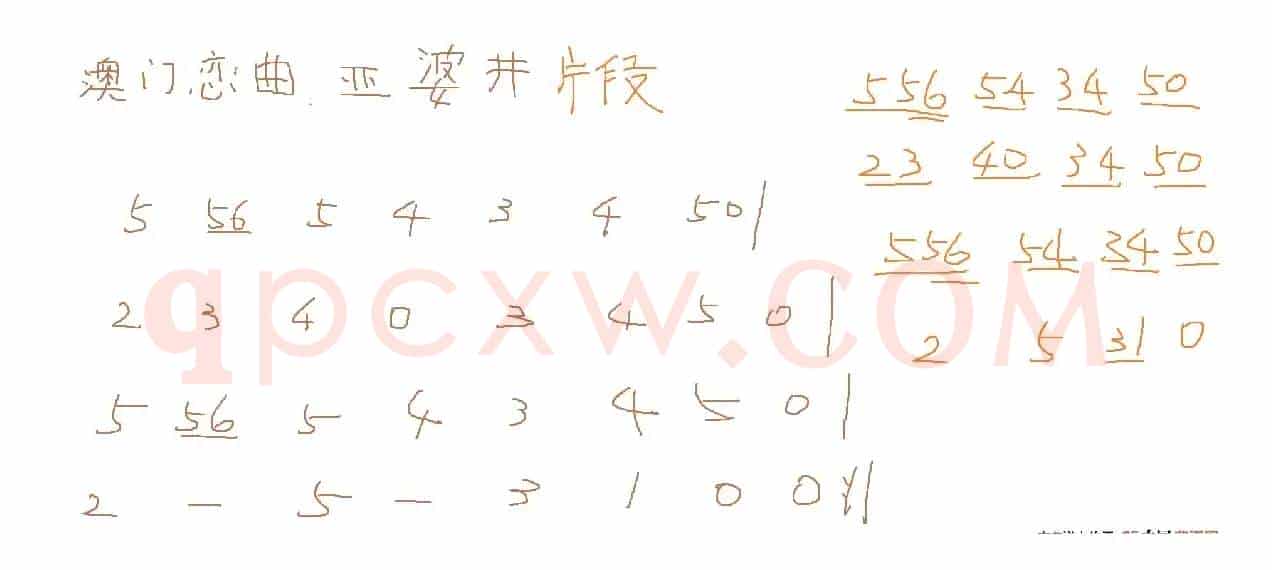 澳门恋曲 亚婆井片段
5 56 5 4 3 4 50|
2 3 4 0 3 4 5 0|
5 56 5 4 3 4 5 0|
2 — 5 — 3 1 0 0 ‖
556 54 34 50
23 40 34 50
556 54 34 50
2 5 31 0
qpcxw.COM